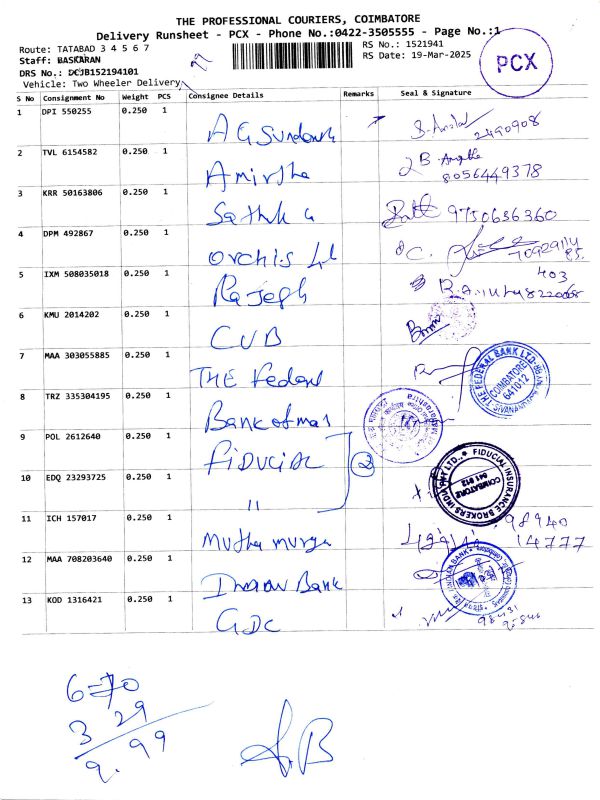 THE PROFESSIONAL COURIERS, COIMBATORE
Delivery Runsheet - PCX - Phone No.:0422-3505555 - Page No.:1
Route: TATABAD 3 4 5 6 7
RS No.: 1521941
Staff: BASKARAN
RS Date: 19-Mar-2025
DRS No.: DCJB152194101
Vehicle: Two Wheeler Delivery
29
PCX
S No Consignment No Weight PCS Consignee Details Remarks Seal & Signature
1 DPI 550255 0.250 1 A G Sundar 2490908
2 TVL 6154582 0.250 1 Amirtha 8056449378
3 KRR 50163806 0.250 1 Sathik G 9750656360
4 DPM 492867 0.250 1 Orchis
5 IXM 508035018 0.250 1 Rajesh 403
6 KMU 2014202 0.250 1 CUB
7 MAA 303055885 0.250 1 THE Federal THE FEDERAL BANK LTD. COIMBATORE 641012
8 TRZ 335304195 0.250 1 Bank of mas
9 POL 2612640 0.250 1 FiDUCiAL 2 FIDUCIAL INSURANCE BROKERS INDIA PVT LTD., COIMBATORE 641 012
10 EDQ 23293725 0.250 1 "
11 ICH 157017 0.250 1 Mutha murga 98940 14777
12 MAA 708203640 0.250 1 Indian Bank INDIAN BANK
13 KOD 1316421 0.250 1 GDC
6=70
3 29
9.99